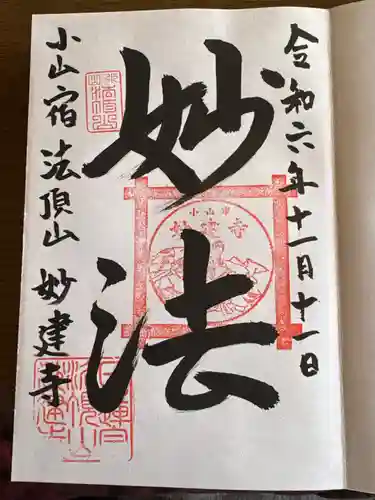 令和六年十一月十一日
妙法
小山宿 法頂山 妙建寺
小山市
妙建寺